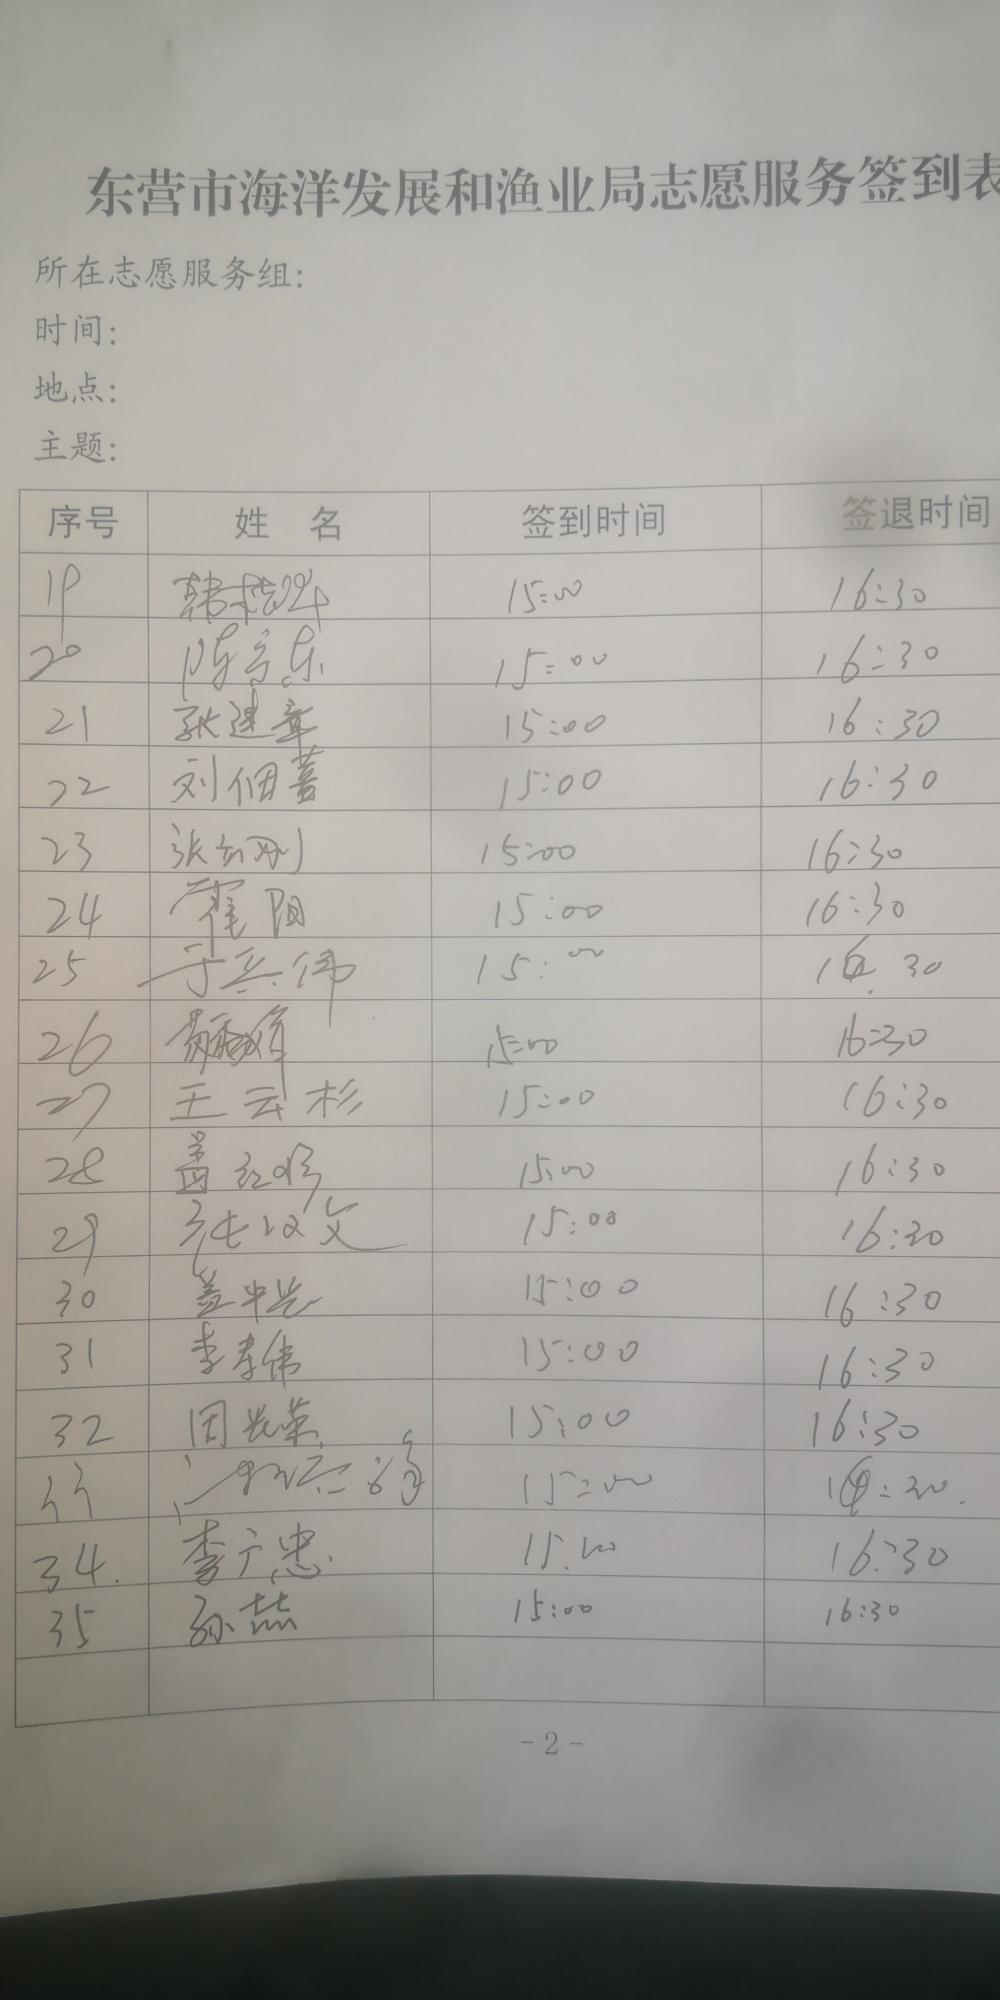 东营市海洋发展和渔业局志愿服务签到表
所在志愿服务组:
时间:
地点:
主题:
序号 姓 名 签到时间 签退时间
19 15:00 16:30
20 15:00 16:30
21 张建章 15:00 16:30
22 刘佃蕾 15:00 16:30
23 15:00 16:30
24 霍阳 15:00 16:30
25 于兵伟 15:00 16:30
26 15:00 16:30
27 王云杉 15:00 16:30
28 15:00 16:30
29 张汉文 15:00 16:30
30 盖中兴 15:00 16:30
31 李孝伟 15:00 16:30
32 周光荣 15:00 16:30
33 15:00 16:30
34. 李广忠 15:00 16:30
35 孙喆 15:00 16:30
- 2 -